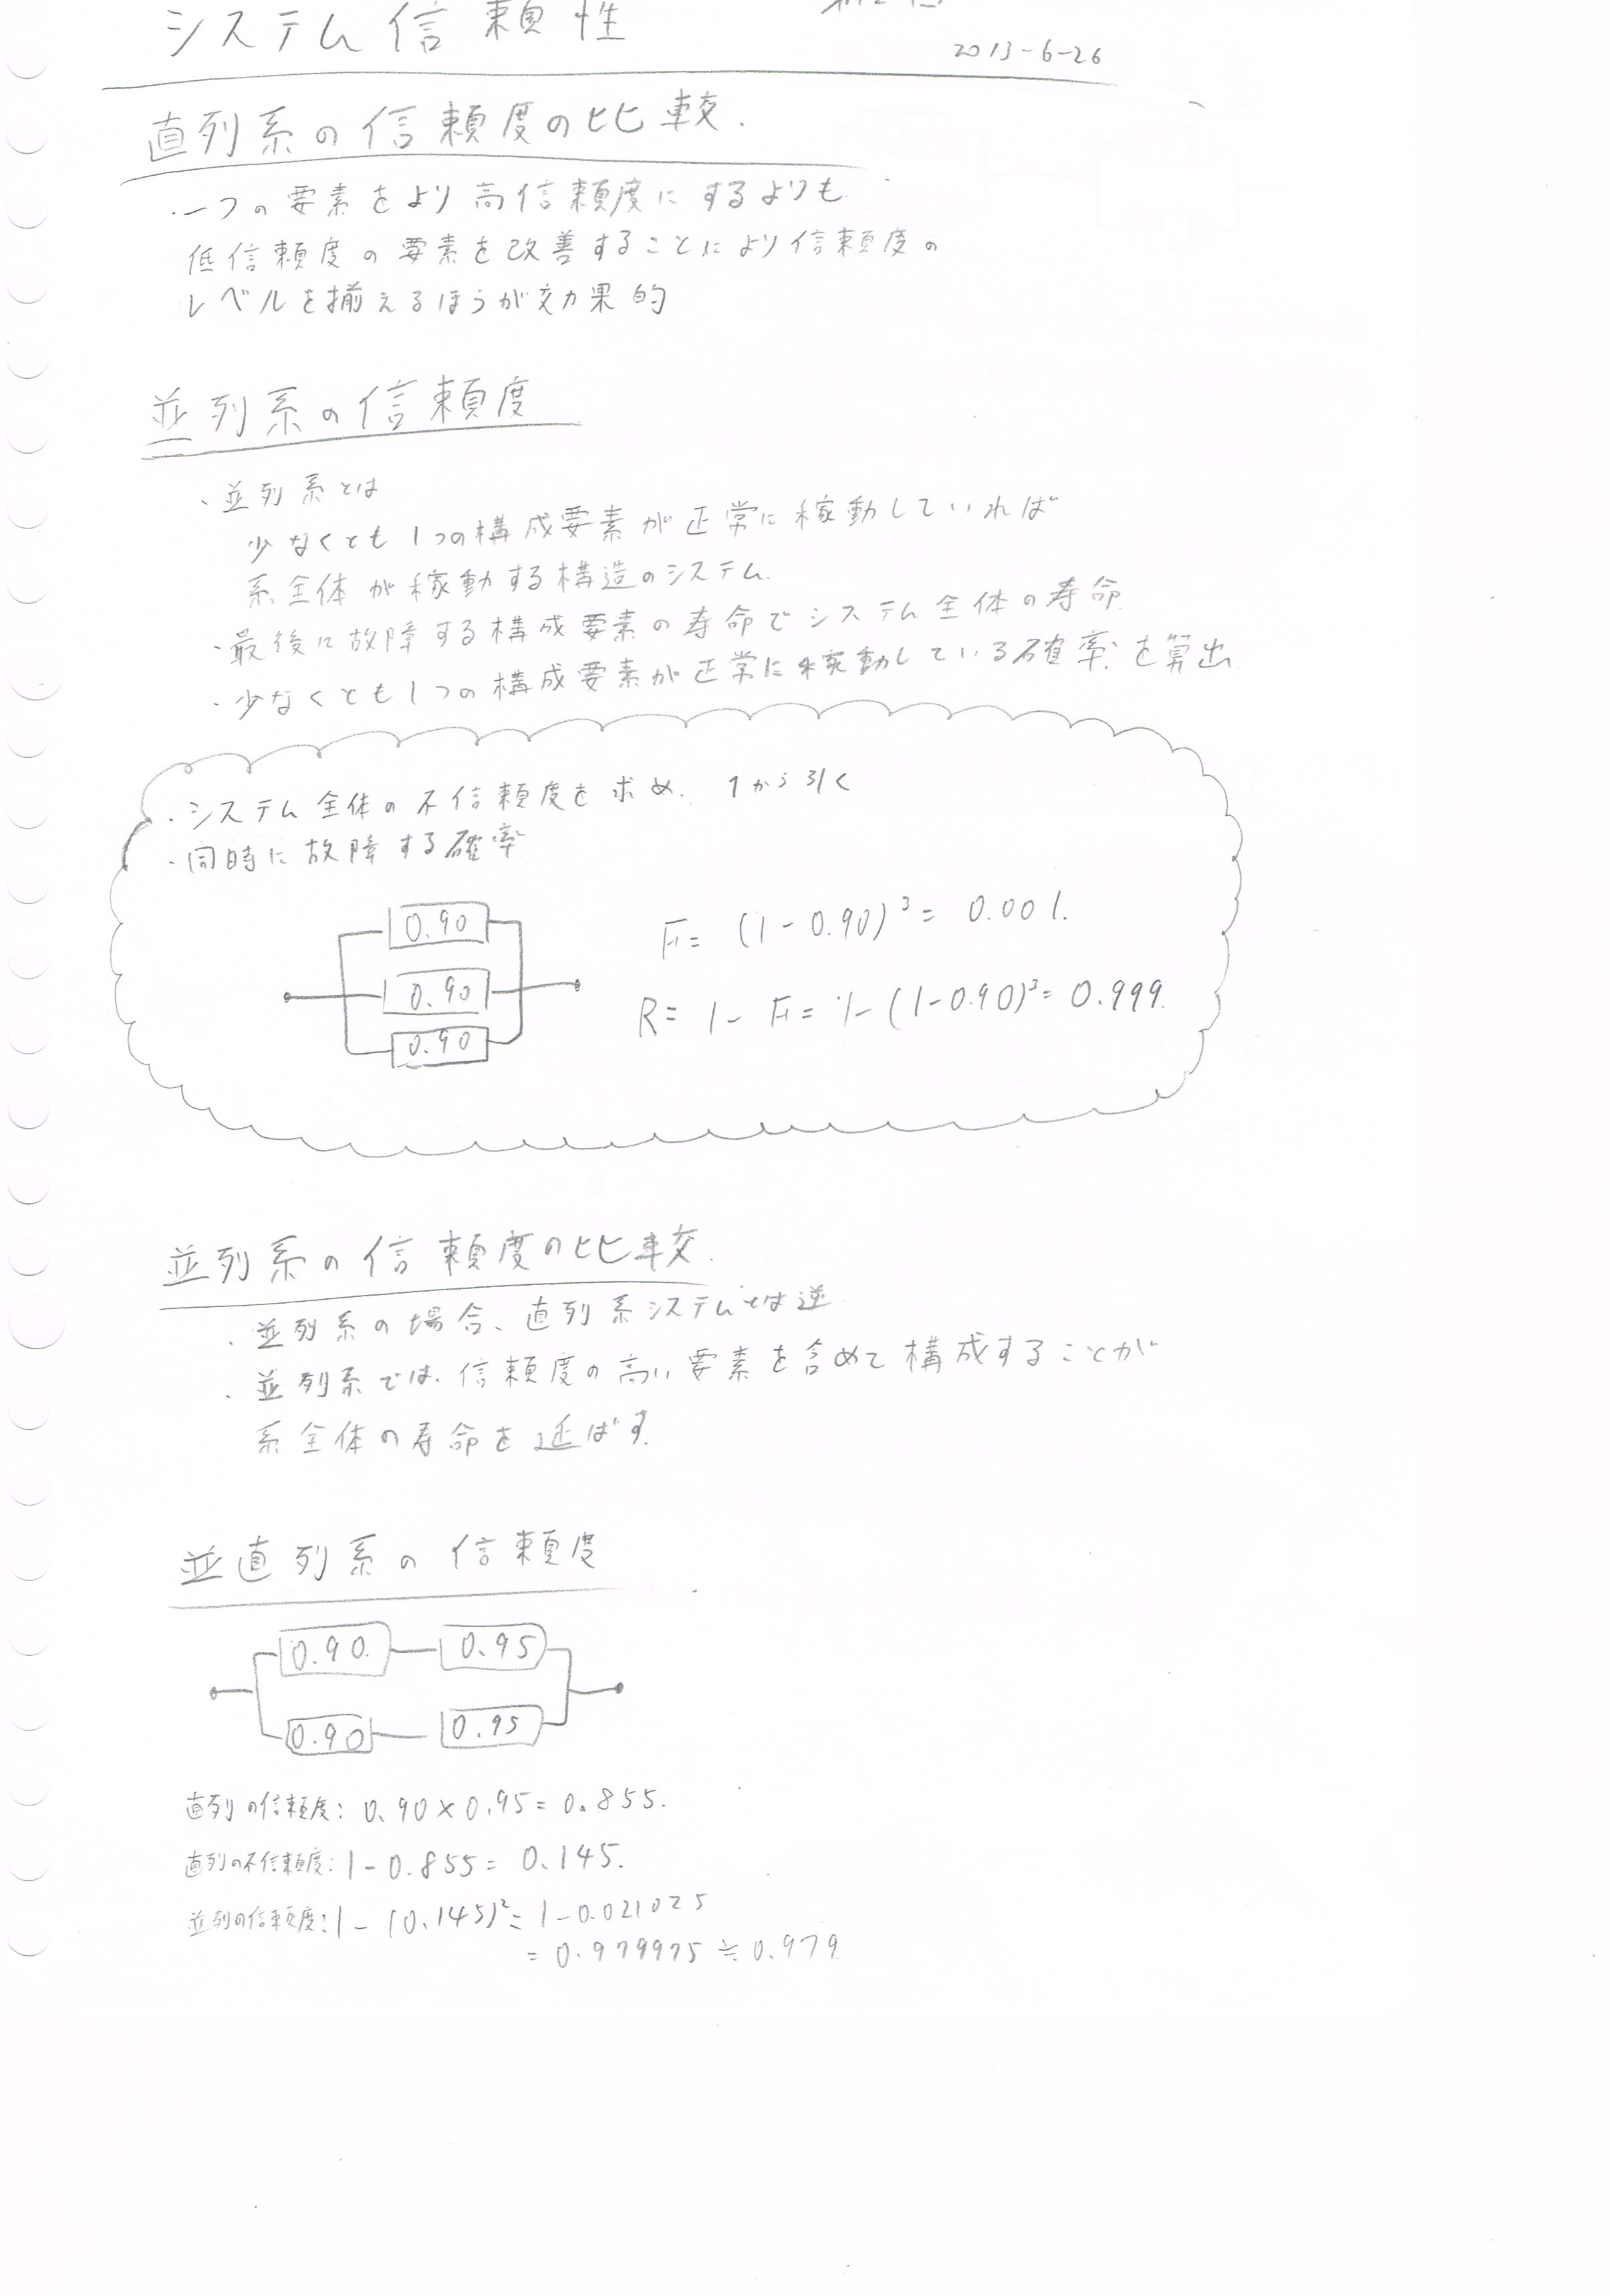 システム信頼性
2013-6-26
直列系の信頼度の比較.
・一つの要素をより高信頼度にするよりも
低信頼度の要素を改善することにより信頼度の
レベルを揃えるほうが効果的
並列系の信頼度
・並列系とは
少なくとも1つの構成要素が正常に稼動していれば
系全体が稼動する構造のシステム.
・最後に故障する構成要素の寿命でシステム全体の寿命
・少なくとも1つの構成要素が正常に稼動している確率を算出
・システム全体の不信頼度を求め. 1から引く
・同時に故障する確率
0.90
0.90
0.90
F= (1-0.90)³= 0.001.
R= 1- F= 1-(1-0.90)³= 0.999.
並列系の信頼度の比較.
・並列系の場合、直列系システムとは逆
・並列系では. 信頼度の高い要素を含めて構成することが
系全体の寿命を延ばす.
並直列系の信頼度
0.90. 0.95
0.90 0.95
直列の信頼度: 0.90×0.95=0.855.
直列の不信頼度: 1-0.855= 0.145.
並列の信頼度: 1-(0.145)²= 1-0.021025
= 0.979975≒0.979